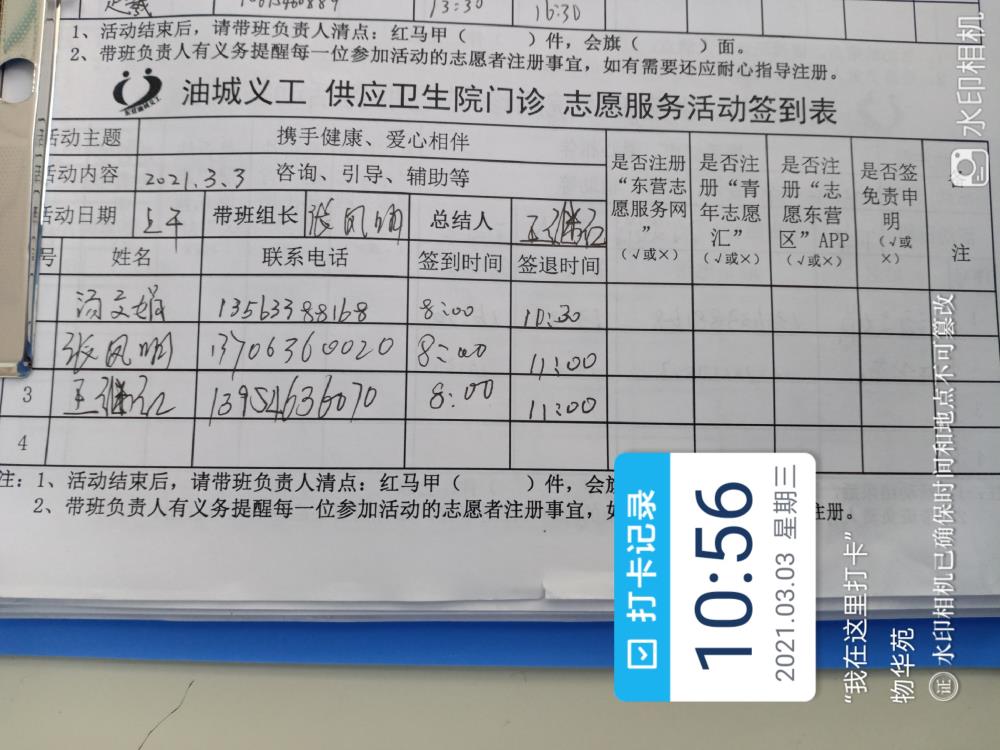 13:30 16:30
1、活动结束后，请带班负责人清点：红马甲（ ）件，会旗（ ）面。
2、带班负责人有义务提醒每一位参加活动的志愿者注册事宜，如有需要还应耐心指导注册。
油城义工 供应卫生院门诊 志愿服务活动签到表
活动主题 携手健康、爱心相伴
活动内容 2021.3.3 咨询、引导、辅助等
活动日期 上午 带班组长 张凤明 总结人 王继红
是否注册“东营志愿服务网”（√或×）
是否注册“青年志愿汇”（√或×）
是否注册“志愿东营区”APP（√或×）
是否签免责申明（√或×）
备注
号 姓名 联系电话 签到时间 签退时间
汤文娟 13563388168 8:00 10:30
张凤明 13706360020 8:00 11:00
3 王继红 13954636070 8:00 11:00
4
注：1、活动结束后，请带班负责人清点：红马甲（ ）件，会旗
2、带班负责人有义务提醒每一位参加活动的志愿者注册事宜，如 注册。
打卡记录
10:56
2021.03.03 星期三
“我在这里打卡”
物华苑
证 水印相机已确保时间和地点不可篡改
水印相机